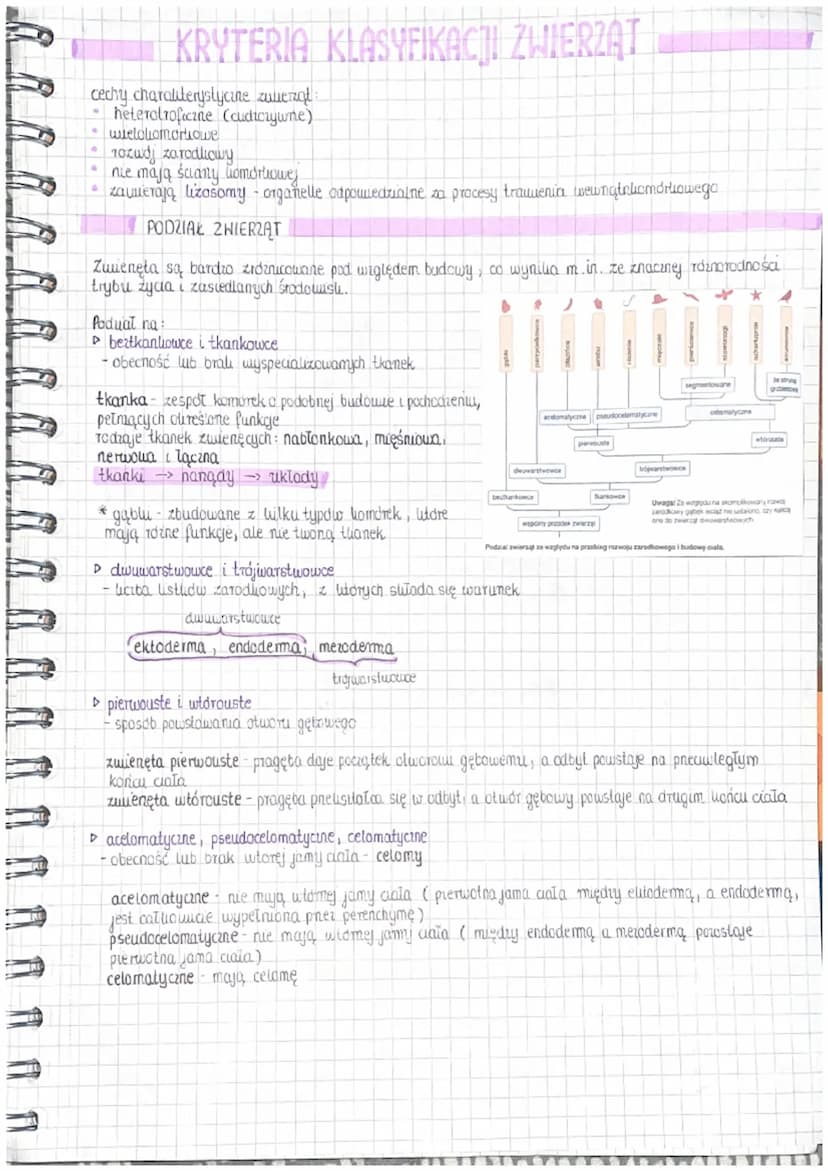 KRYTERIA KLASYFIKACJI ZWIERZĄT
cechy charakterystyczne zwierząt:
• heterotroficzne (cudzożywne)
• wielokomórkowe
• rozwój zarodkowy
• nie mają ściany komórkowej
• zawierają lizosomy - organelle odpowiedzialne za procesy trawienia wewnątrzkomórkowego
PODZIAŁ ZWIERZĄT
Zwierzęta są bardzo zróżnicowane pod względem budowy, co wynika m.in. ze znacznej różnorodności
trybu życia i zasiedlanych środowisk.
Podział na:
▷ beztkankowce i tkankowce
- obecność lub brak wyspecjalizowanych tkanek
tkanka - zespół komórek o podobnej budowie i pochodzeniu,
pełniących określone funkcje
rodzaje tkanek zwierzęcych: nabłonkowa, mięśniowa,
nerwowa i łączna
tkanki → narządy → układy
* gąbki - zbudowane z kilku typów komórek, które
mają różne funkcje, ale nie tworzą tkanek
gąbki
parzydełkowce
płazińce
wrotki
nicienie
mięczaki
pierścienice
stawonogi
szkarłupnie
strunowce
segmentowane
ze struną
grzbietową
acelomatyczne
pseudocelomatyczne
celomatyczne
pierwouste
wtórouste
dwuwarstwowce
trójwarstwowce
beztkankowce
tkankowce
wspólny przodek zwierząt
Uwaga! Ze względu na skomplikowany rozwój
zarodkowy gąbek wciąż nie ustalono, czy należą
one do zwierząt dwuwarstwowych.
Podział zwierząt ze względu na przebieg rozwoju zarodkowego i budowę ciała.
▷ dwuwarstwowce i trójwarstwowce
- liczba listków zarodkowych, z których składa się warunek
dwuwarstwowce
ektoderma, endoderma, mezoderma
trójwarstwowce
▷ pierwouste i wtórouste
- sposób powstawania otworu gębowego
zwierzęta pierwouste - pragęba daje początek otworowi gębowemu, a odbyt powstaje na przeciwległym
końcu ciała
zwierzęta wtórouste - pragęba przekształca się w odbyt, a otwór gębowy powstaje na drugim końcu ciała
▷ acelomatyczne, pseudocelomatyczne, celomatyczne
- obecność lub brak wtórej jamy ciała - celomy
acelomatyczne - nie mają wtórnej jamy ciała (pierwotna jama ciała między ektodermą, a endodermą,
jest całkowicie wypełniona przez perenchymę)
pseudocelomatyczne - nie mają wtórnej jamy ciała (między endodermą a mezodermą pozostaje
pierwotna jama ciała)
celomatyczne - mają celomę